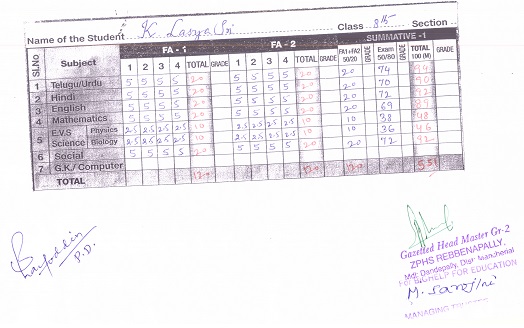 Name of the Student K. Lasya Sri Class 8th Section
SL.No Subject FA - 1 FA - 2 SUMMATIVE -1
1 2 3 4 TOTAL GRADE 1 2 3 4 TOTAL GRADE FA1+FA2 50/20 GRADE Exam 50/80 GRADE TOTAL 100 (M) GRADE
1 Telugu/Urdu 5 5 5 5 20 5 5 5 5 20 20 74 94
2 Hindi 5 5 5 5 20 5 5 5 5 20 20 70 90
3 English 5 5 5 5 20 5 5 5 5 20 20 72 92
4 Mathematics 5 5 5 5 20 5 5 5 5 20 20 69 89
5 E.V.S Physics 2.5 2.5 2.5 2.5 10 2.5 2.5 2.5 2.5 10 10 38 48
Science Biology 2.5 2.5 2.5 2.5 10 2.5 2.5 2.5 2.5 10 10 36 46
6 Social 5 5 5 5 20 5 5 5 5 20 20 72 92
7 G.K./ Computer
TOTAL 120 120 120 551
P.D.
Gazetted Head Master Gr-2
ZPHS REBBENAPALLY,
Mdl: Dandapally, Dist: Mancherial
For BIGHELP FOR EDUCATION
M. Sarojini
MANAGING TRUSTEE